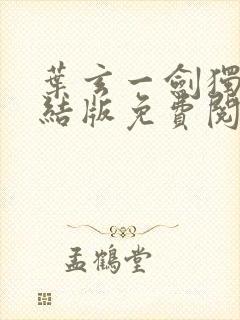 葉玄一劍獨
結版免費閱
孟鶴堂